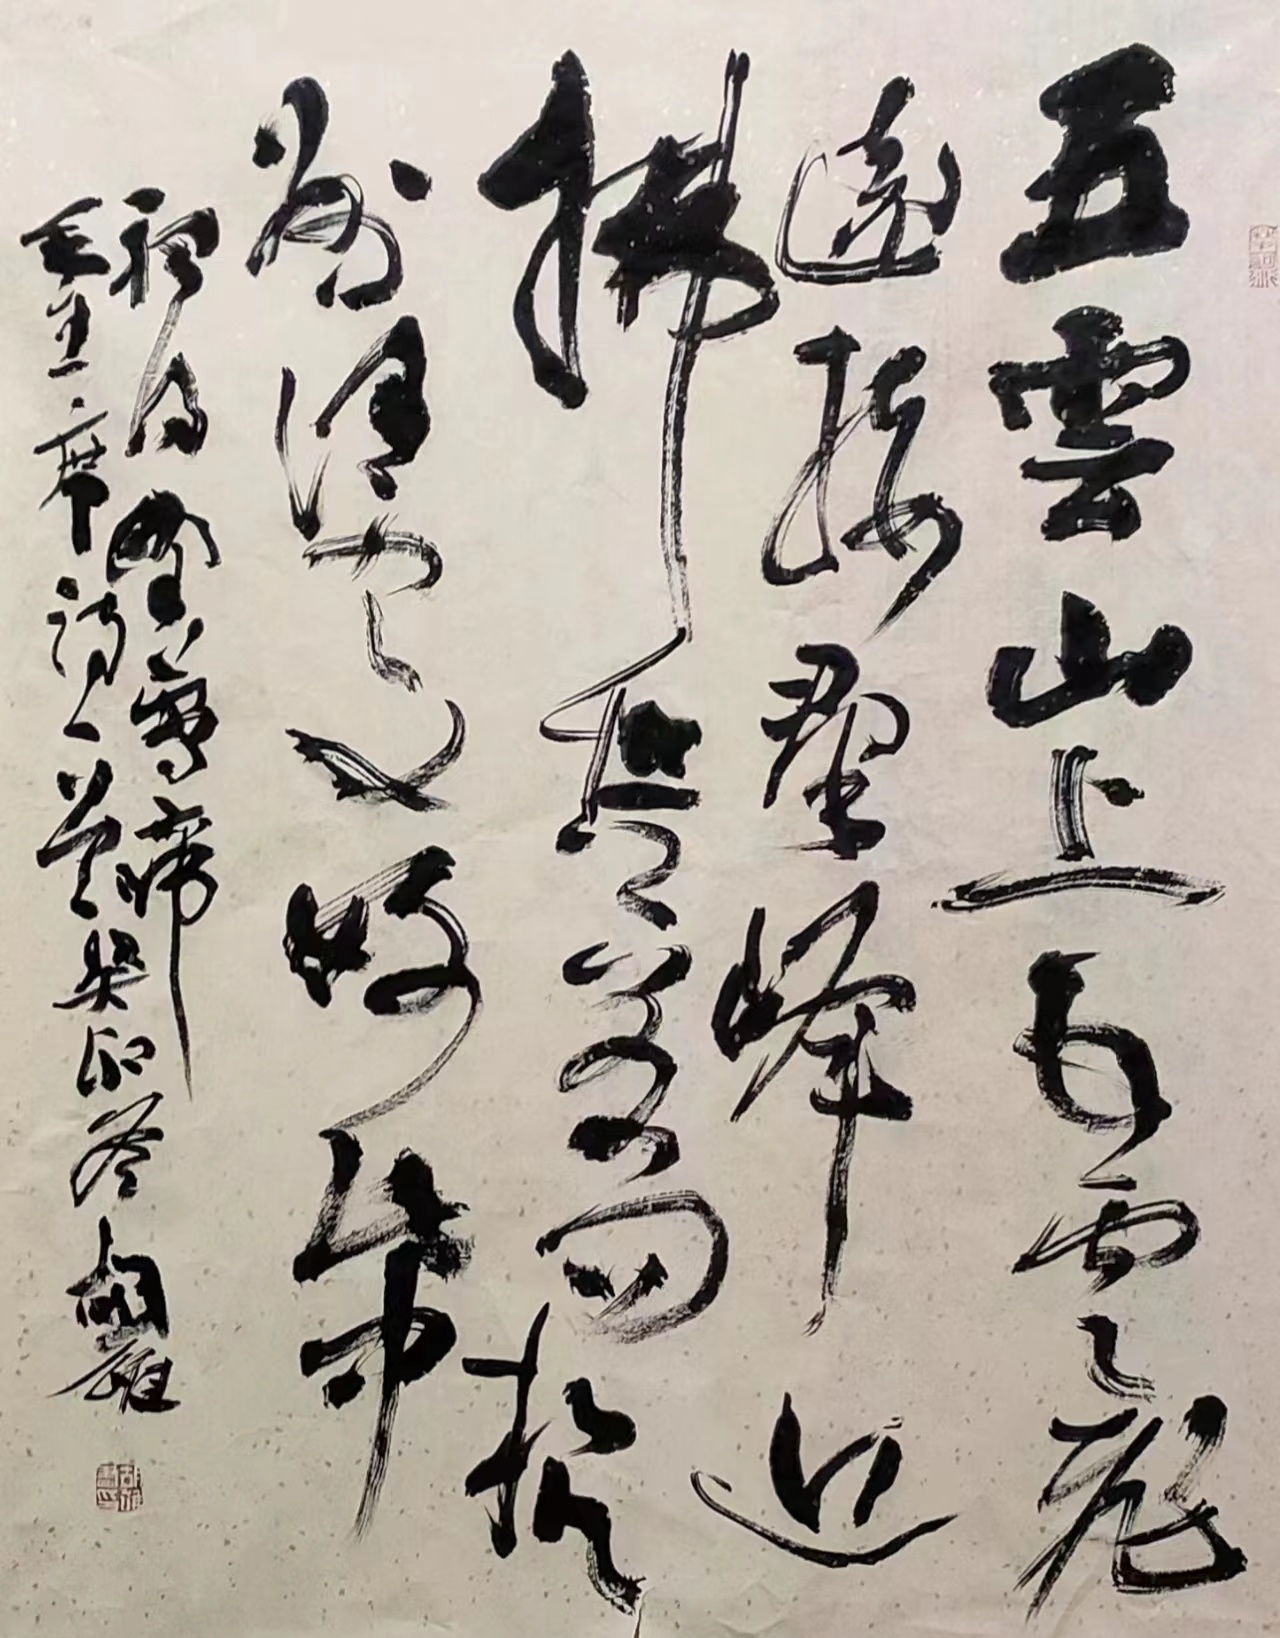 五雲山上五雲飛
遠接群峰近
拂堤若問杭
州何處好此中
聽得野鶯啼
毛主席詩一首癸卯冬胡雄